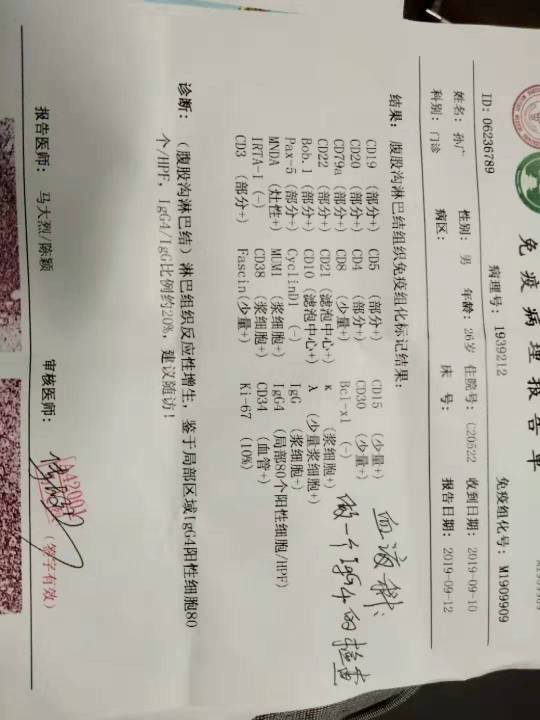 免疫病理报告单
ID: 06236789 病理号: 1939212 免疫组化号: M1909909
姓名: 孙广 性别: 男 年龄: 26岁 住院号: C20522 收到日期: 2019-09-10
科别: 门诊 病区: 床 号: 报告日期: 2019-09-12
结果: 腹股沟淋巴结组织免疫组化标记结果:
CD19 (部分+) CD5 (部分+) CD15 (少量+)
CD20 (部分+) CD4 (部分+) CD30 (少量+)
CD79a (部分+) CD8 (少量+) Bcl-xl (-)
CD22 (部分+) CD21 (滤泡中心+) κ (浆细胞+)
Bob.1 (部分+) CD10 (滤泡中心+) λ (少量浆细胞+)
Pax-5 (部分+) CyclinD1 (-) IgG (浆细胞+)
MNDA (灶性+) MUM1 (浆细胞+) IgG4 (局部80个阳性细胞/HPF)
IRTA-1 (-) CD38 (浆细胞+) CD34 (血管+)
CD3 (部分+) Fascin(少量+) Ki-67 (10%)
血液科:
做一个IgG4的检查
诊断: (腹股沟淋巴结) 淋巴组织反应性增生, 鉴于局部区域IgG4阳性细胞80
个/HPF, IgG4/IgG比例约20%, 建议随访!
报告医师: 马大烈/陈颖 审核医师: (签字有效)